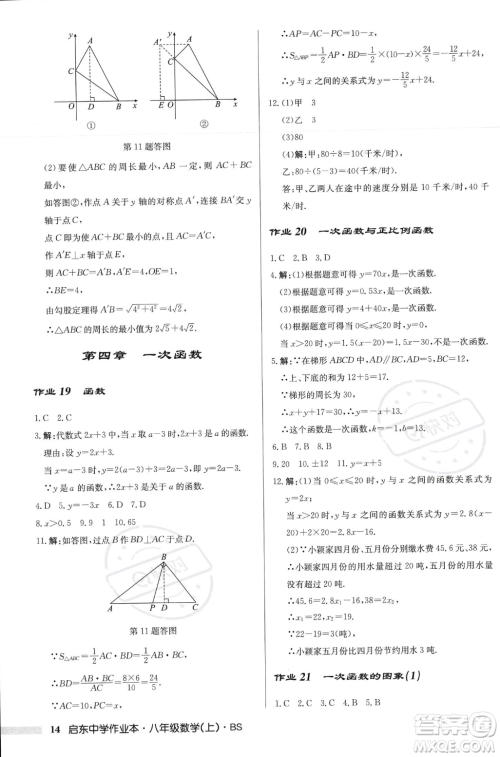 y
A
C
O
D
B
x
①
y
A′
A
C
O
E
B
x
②
第11题答图
(2)要使△ABC的周长最小,AB一定,则AC+BC
最小,
如答图②,作点A关于y轴的对称点A′,连接BA′
与y轴交于点C,
∴点C即为所求.
作A′E⊥x轴于点E.
∵点A和A′关于y轴对称,
∴BE=4,
由勾股定理得A′B=√(4²+4²)=4√2,
∴△ABC的周长的最小值为2√5+4√2.
第四章 一次函数
作业19 函数
1.C 2.C
3.解:代数式2x+3中,x是自变量,2x+3是x的函数.
理由:因为对于x的每一个值,2x+3都有唯一确定
的值,所以代数式2x+3的值是x的函数.
当x取a-3时,2x+3=2(a-3)+3=2a-3.
4.D 5.② 6.D 7.D
8.x>0.5 9.9 1 10.65
11.解:如答图,过点B作BD⊥AC于点D.
B
A
P
D
C
第11题答图
∵S△ABC=1/2AC·BD,∴BD=(8×6)/10=24/5.
∵AC=10,PC=x,
∴AP=AC-PC=10-x,
∴S△ABP=1/2AP·BD=1/2×(10-x)×24/5=-12/5x+24,
∴y与x之间的关系式为y=-12/5x+24.
12.(1)甲 3
(2)乙 3
(3)80
(4)解:甲:80÷8=10(千米/时).
乙:80÷(5-3)=40(千米/时).
答:甲、乙两人在途中的速度分别是10千米/时,
40千米/时.
作业20 一次函数与正比例函数
1.C 2.B 3.D
4.解:(1)根据题意可得y=70x,是一次函数.
(2)根据题意可得y=0.53x,是一次函数.
(3)根据题意可得y=4+0.95x,是一次函数.
(4)当0≤x≤20时,y=1.6x,是一次函数;
当x>20时,y=2.8x-24,是一次函数.
5.解:∵在梯形ABCD中,AD∥BC,
∴x,y分别是梯形的上底、下底.
∴x+y=17×2,∴y=-x+34,
∴y是x的一次函数.
6.B 7.B 8.B
9.20 10.±12 11.y=1/5x+1/5
12.解:(1)当0≤x≤20时,y与x之间的函数关系式为
y=2x;
当x>20时,y与x之间的函数关系式为y=2.8(x-
20)+2×20=2.8x-16.
(2)∵小颖家四月份、五月份分别缴费45.6元、38元,
∴小颖家四月份的用水量超过20吨,五月份的用水
量不超过20吨.
∴45.6=2.8x₁-16,38=2x₂,
∴x₁=22,x₂=19.
∵22-19=3(吨),
∴小颖家五月份比四月份节约用水3吨.
作业21 一次函数的图象(1)
1.A 2.A 3.D 4.D
14 启东中学作业本·八年级数学(上)·BS